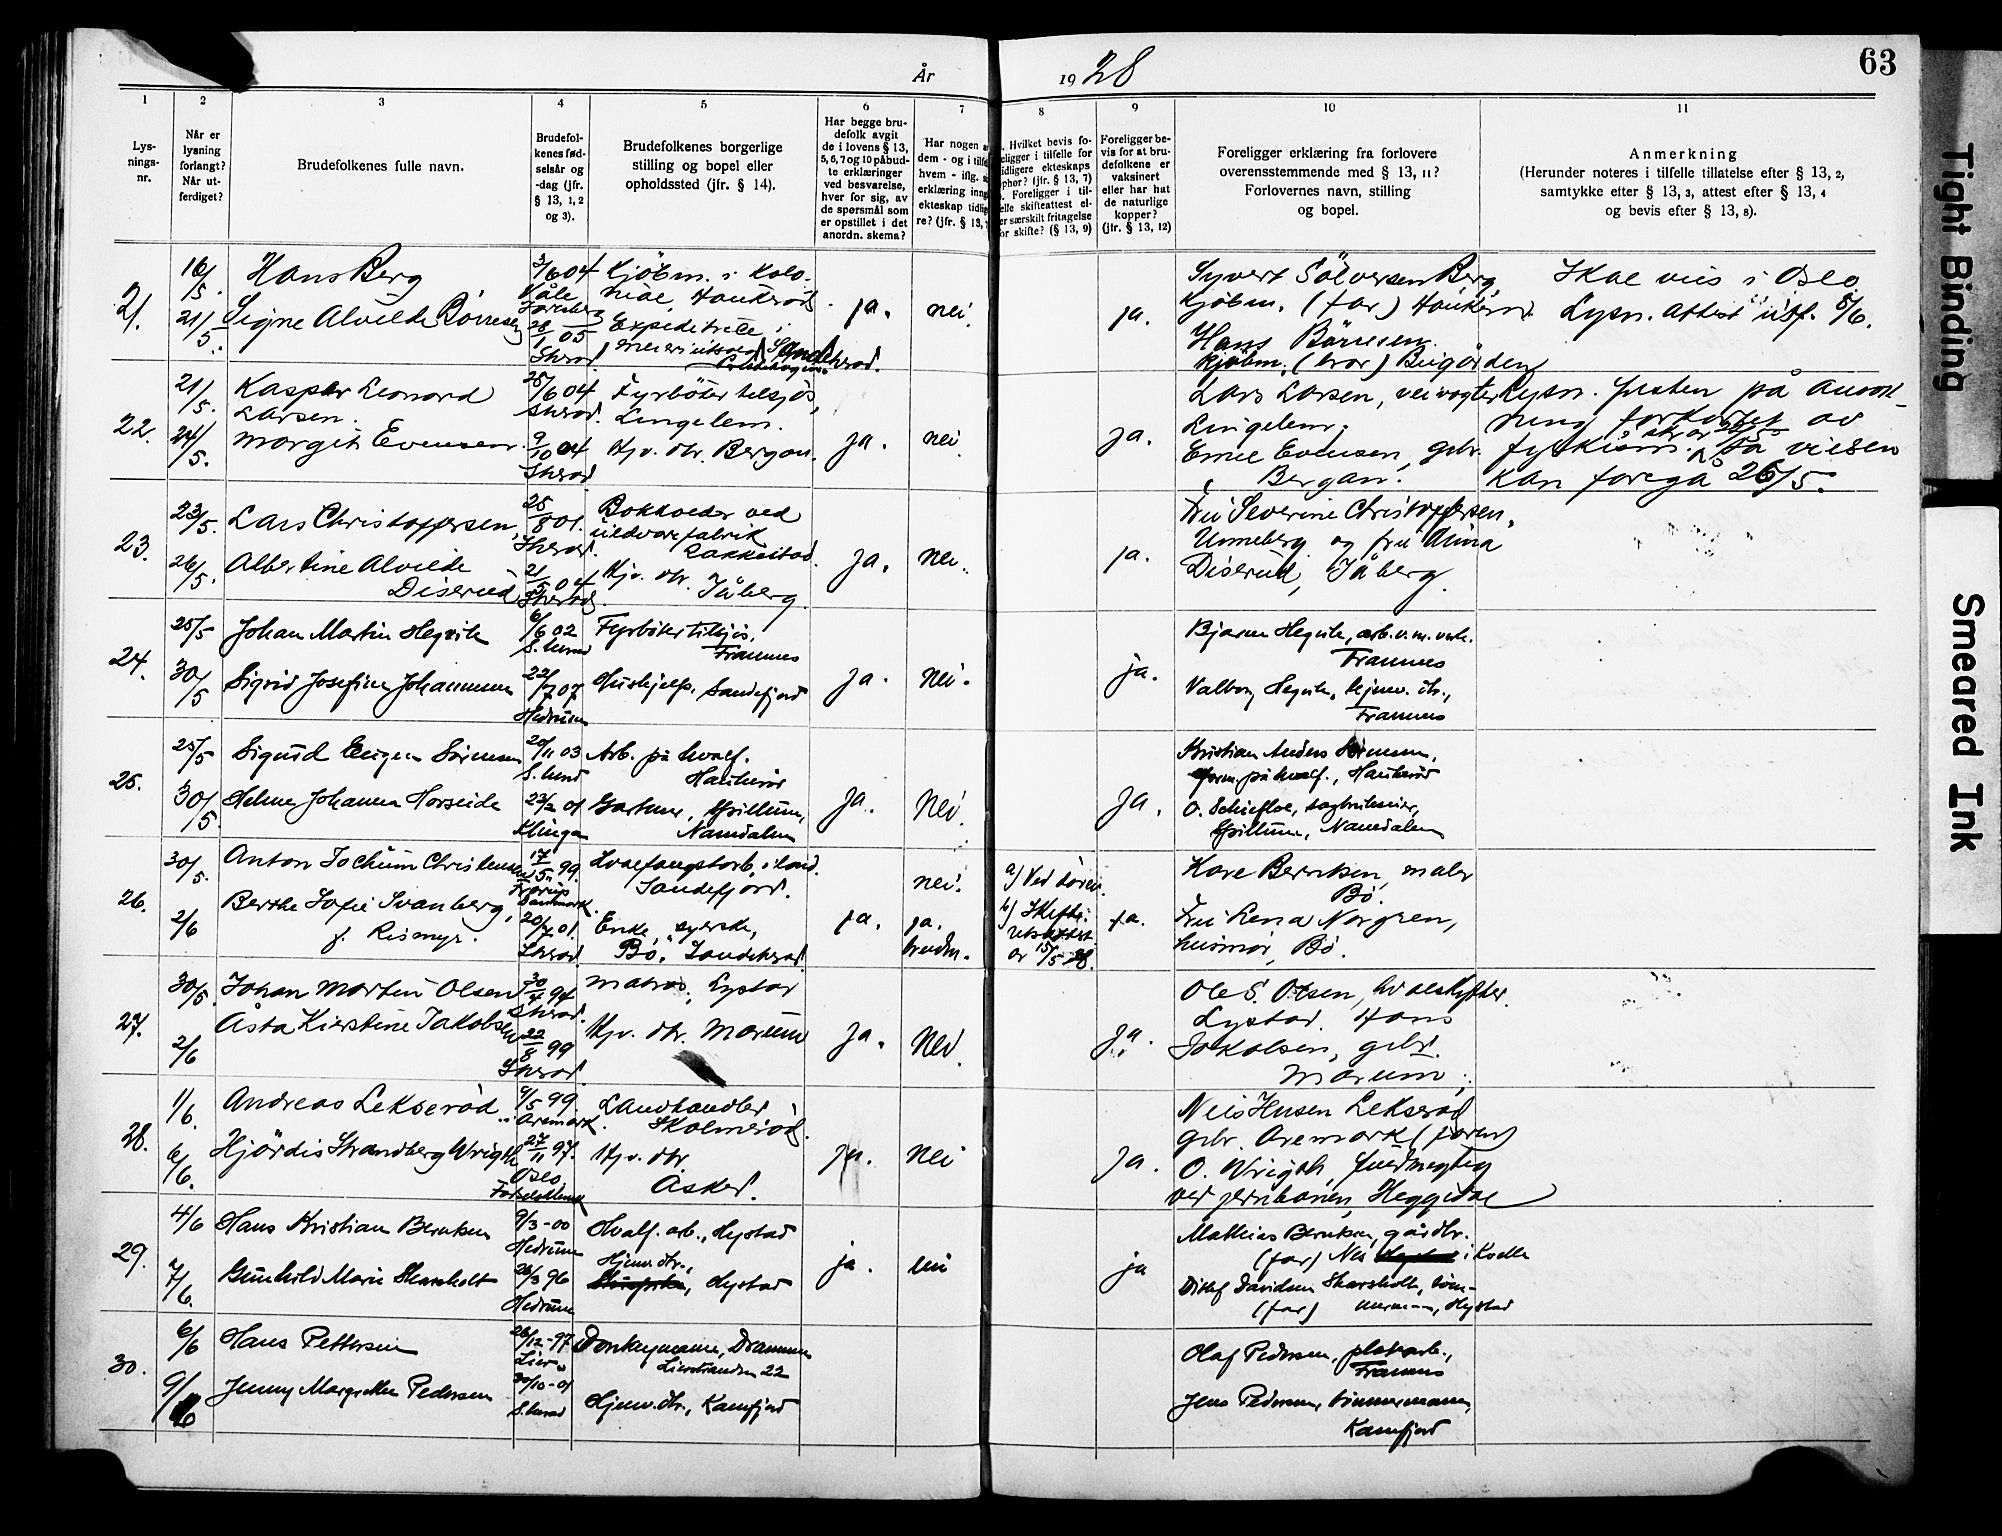 63
År 1928
1
2
3
4
5
6
7
8
9
10
11
Lys-
nings-
nr.
Når er
lysning
forlangt?
Når ut-
ferdiget?
Brudefolkenes fulle navn.
Brudefol-
kenes fød-
selsår og
-dag (jfr.
§ 13, 1, 2
og 3).
Brudefolkenes borgerlige
stilling og bopel eller
opholdssted (jfr. § 14).
Har begge bru-
defolk avgit
de i lovens § 13,
5, 6, 7 og 10 påbud-
te erklæringer
ved besvarelse,
hver for sig, av
de spørsmål som
er opstillet i det
anordn. skema?
Har nogen a
dem - og i tilfe
hvem - iflg. s
erklæring inng
ekteskap tidlig
re? (jfr. § 13,
Hvilket bevis fo-
religger i tilfelle for
tidligere ekteskaps
ophør? (jfr. § 13, 7)
Foreligger i til-
elle skifteattest el-
er særskilt fritagelse
or skifte? (§ 13, 9)
Foreligger be-
vis for at bru-
defolkene er
vaksinert
eller har hat
de naturlige
kopper?
(jfr. § 13, 12)
Foreligger erklæring fra forlovere
overensstemmende med § 13, 11?
Forlovernes navn, stilling
og bopel.
Anmerkning
(Herunder noteres i tilfelle tillatelse efter § 13, 2,
samtykke efter § 13, 3, attest efter § 13, 4
og bevis efter § 13, 8).
21.
16/5.
21/5.
Hans Berg
Signe Alvilde Börresen
3/6 04
Våle
28/1 05
Kjöbm. i Kolo-
nial, Haukeröd
Expeditrise i
Sandeherad.
ja.
nei.
ja.
Syvert Sölversen Berg,
Kjöbm. (far) Haukeröd.
Hans Börresen
kjöbm. (bror) Bugården
Skal vies i Oslo
Lysn. Attest utf. 5/6.
22.
21/5.
24/5.
Kasper Leonard
Larsen.
Margit Evensen.
25/6 04
Sherad.
9/10 04
Sherad
Fyrböter tilsjös,
Lingelem.
Hj.v. dtr. Bergan.
ja.
nei.
ja.
Lars Larsen, veivogter
Lingelem.
Emil Evensen, gbr.
Bergan.
Lysn. fristen på anmod-
ning forkortet av
fylkism. så vielsen
kan foregå 26/5.
23.
23/5.
26/5.
Lars Christoffersen,
Albertine Alvilde
Diserud
25/8 01.
Sherad.
21/5 04
Sherad.
Bokholder ved
uldvarefabrik
Rakkestad.
Hj.v. dtr. Jåberg.
ja.
nei.
ja.
Fru Severine Christoffersen,
Unneberg og fru Mina
Diserud, Jåberg.
24.
25/5
30/5
Johan Martin Hegvik
Sigrid Josefine Johannessen
6/6 02
S.herad
22/7 07
Hedrum
Fyrböter tilsjös,
Framnes
Hushjelp, Sandefjord
ja.
nei.
ja.
Bjarne Hegvik, arb. v. m. verk.
Framnes
Valborg Hegvik, hjemv. dtr.,
Framnes
25.
25/5
30/5.
Sigurd Eugen Sörensen
Helmer Johanna Horseide
20/11 03
S.herad
23/2 01
Klinga
Arb. på hvalf.
Haukeröd
Spillum,
Namdalen
ja.
nei.
ja.
Kristian Anders Sörensen,
på hvalf., Haukeröd
O. Schiefloe, sagbrukseier,
Spillum, Namdalen
26.
30/5.
2/6
Anton Jochum Christensen
Berthe Sofie Svanberg,
f. Rismyr.
17/5 99.
Frörup
Danmark.
20/7 01.
Sherad.
Hvalfangstarb. i land.
Sandefjord.
Enke, syerske,
Bö, Sandeherad.
ja.
nei.
ja.
bruden.
a) Ved döden.
b) Skifte-
rets attest
av 15/5 28.
ja.
Kare Berntsen, maler
Bö.
Fru Lena Norgren,
husmor, Bö.
27.
30/5.
2/6
Johan Martin Olsen
Åsta Kirstine Jakobsen
30/4 94
Sherad.
22/8 99
Sherad.
Matros, Lystad
Hj.v. dtr. Marum
ja.
Nei.
ja.
Ole S. Olsen, hvalskytter.
Lystad. Hans
Jakobsen, gbr.
Marum.
28.
1/6.
6/6.
Andreas Lekseröd
Hjördis Strandberg Wright
9/5 99.
i Aremark.
27/11 97.
Oslo,
Landhandler
Skolmeröd.
Hj.v. dtr.
Asker.
ja.
nei
ja.
Nils Husen Lekseröd
gbr. Aremark (faren)
O. Wright, fuldmegtig
ved jernbanen, Heggedal
29.
4/6
7/6.
Hans Kristian Berntsen
Gunhild Marie Skarsholt
9/3-00
Hedrum
26/3 96
Hedrum
Hvalf. arb., Hystad
Hjemv. dtr.,
Hystad
ja.
nei
ja
Mathias Berntsen, gårdbr.
(far) Nes i Kodal
Ditlef Davidsen Skarsholt, töm-
(far) mermann, Hystad
30.
6/6
9/6
Hans Pettersen
Jenny Margrethe Pedersen
26/12-97
Lier
20/10-01
S.herad
Donkeymann, Drammen
Lierstranden 22
Hjemv. dtr., Kamfjord
Olaf Pedersen, platearb.,
Framnes
Jens Pedersen, tömmermann,
Kamfjord
Tight Binding
Smeared Ink